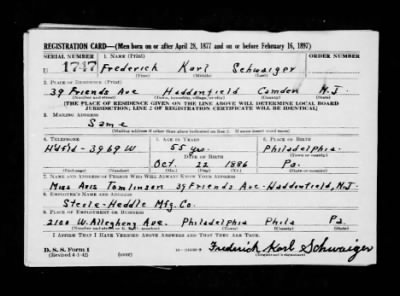 REGISTRATION CARD—(Men born on or after April 28, 1877 and on or before February 16, 1897)
SERIAL NUMBER 1. NAME (Print) ORDER NUMBER
U 1747 Frederick Karl Schwaiger
(First) (Middle) (Last)
2. PLACE OF RESIDENCE (Print)
39 Friends Ave Haddonfield Camden N.J.
(Number and street) (Town, township, village, or city) (County) (State)
[THE PLACE OF RESIDENCE GIVEN ON THE LINE ABOVE WILL DETERMINE LOCAL BOARD
JURISDICTION; LINE 2 OF REGISTRATION CERTIFICATE WILL BE IDENTICAL]
3. MAILING ADDRESS
Same
(Mailing address if other than place indicated on line 2. If same insert word same)
4. TELEPHONE 5. AGE IN YEARS 6. PLACE OF BIRTH
3969 W 55 yrs. Philadelphia
DATE OF BIRTH (Town or county)
Oct. 22 1886 Pa.
(Exchange) (Number) (Mo.) (Day) (Yr.) (State or country)
7. NAME AND ADDRESS OF PERSON WHO WILL ALWAYS KNOW YOUR ADDRESS
Miss Avis Tomlinson 39 Friends Ave-Haddonfield, N.J.
8. EMPLOYER'S NAME AND ADDRESS
Steele-Heddle Mfg. Co.
9. PLACE OF EMPLOYMENT OR BUSINESS
2100 W. Allegheny Ave. Philadelphia Phila Pa.
(Number and street or R. F. D. number) (Town) (County) (State)
I AFFIRM THAT I HAVE VERIFIED ABOVE ANSWERS AND THAT THEY ARE TRUE.
D. S. S. Form 1
(Revised 4-1-42) (over) Frederick Karl Schwaiger
(Registrant's signature)